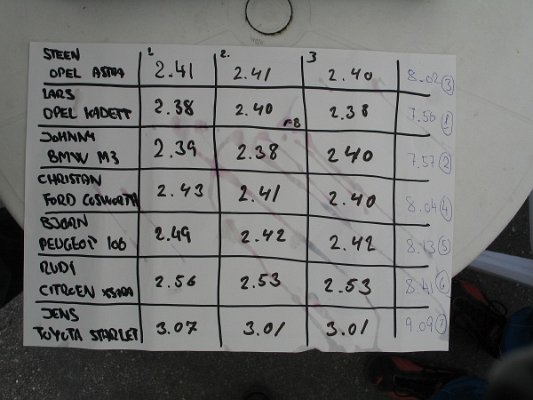 1 2. 3
STEEN
OPEL ASTRA 2.41 2.41 2.40 8.02 3
LARS
OPEL KADETT 2.38 2.40 2.38 7.56 1
JOHNNY
BMW M3 2.39 2.38 2.40 7.57 2
CHRISTIAN
FORD COSWORTH 2.43 2.41 2.40 8.04 4
BJØRN
PEUGEOT 106 2.49 2.42 2.42 8.13 5
RUDI
CITROEN XSARA 2.56 2.53 2.53 8.41 6
JENS
TOYOTA STARLET 3.07 3.01 3.01 9.09 7